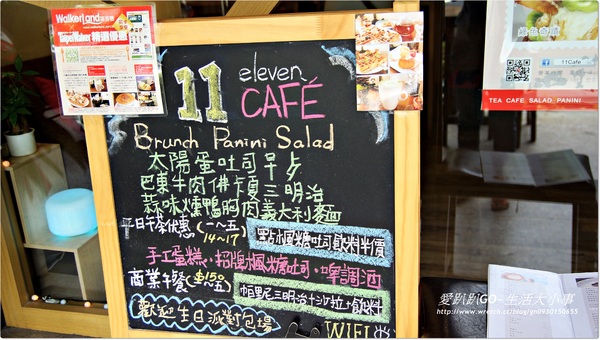 WalkerLand
TaipeiWalker 精選優惠
11 eleven
CAFÉ
Brunch Panini Salad
太陽蛋吐司早夕
巴東牛肉佛卡夏三明治
蒜味燻鴨胸肉義大利麵
平日午茶優惠 (一~五)
14~17
點楓糖吐司飲料半價
手工蛋糕·招牌楓糖吐司·啤調酒
商業午餐 ($150 一~五)
帕里尼三明治+沙拉+飲料
歡迎生日派對包場
WIFI
綠色奇蹟
11Cafe
TEA CAFE, SALAD PANINI
愛趴趴GO~生活大小事